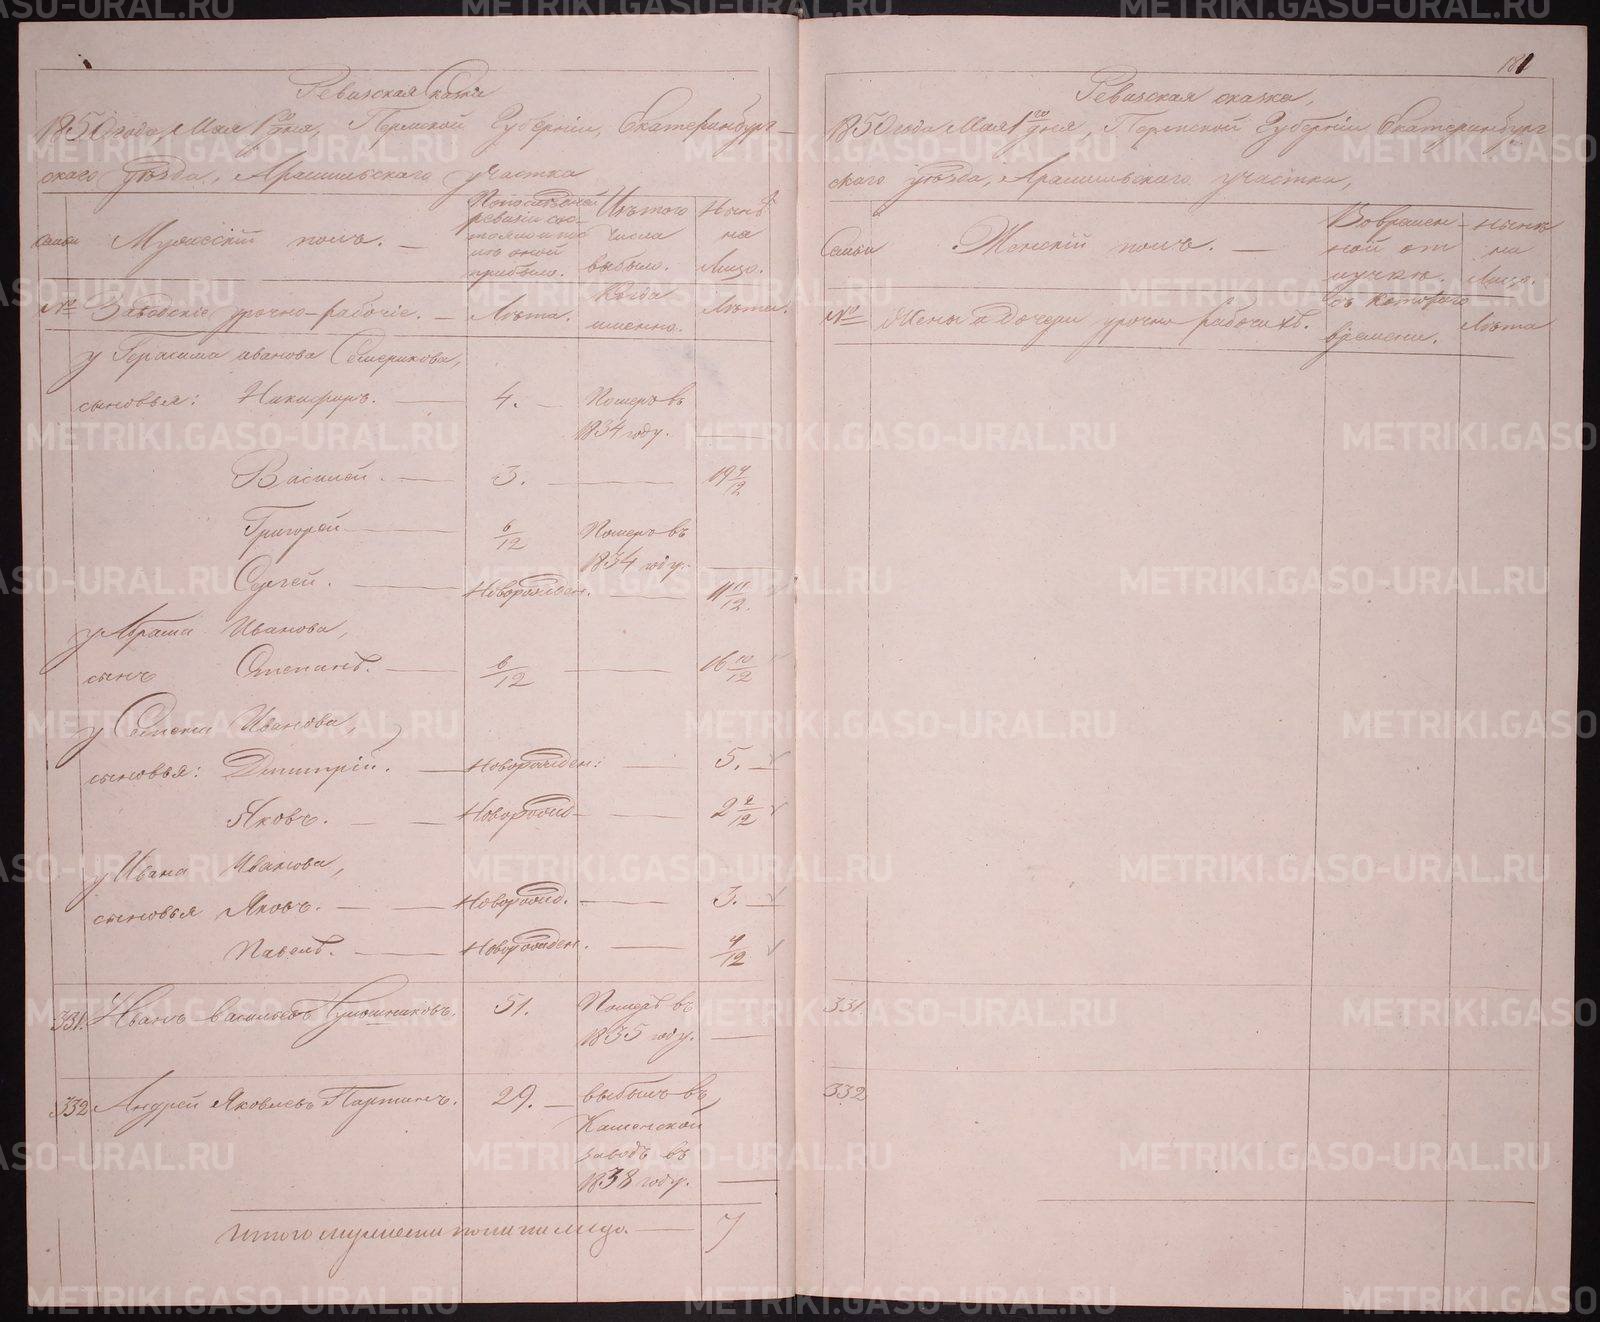 Ревизская Сказка
1850 года Мая 1го дня, Пермской Губернии, Екатеринбург-
скаго уѣзда, Арамильскаго участка
Семьи
Мужескій полъ. —
По последней
ревизіи сос-
тояло и по
слѣ оной
прибыло.
Изъ того
числа
выбыло.
Нынѣ
на
Лицо.
№ Заводскіе урочно-рабочіе. — Лѣта. Когда
именно. Лѣта.
у Герасима иванова Семерикова,
сыновья: Никифоръ. — 4. — Померъ въ
1834 году. —
Василей. — 3. — 19 4/12
Григорей — 6/12 Померъ въ
1834 году. —
Сергей. — Новорожден. — 11 11/12.
у Абрама Иванова,
сынъ Степанъ. — 6/12 — 16 10/12
у Семена Иванова,
сыновья: Дмитрій. — Новорожден: — 5. —
Яковъ. — Новорожд — 2 2/12
у Ивана Иванова,
сыновья Яковъ. — Новорожд. — 3. —
Павелъ. — Новорожден. — 4/12
331. Иванъ васильевъ 51. Померъ въ
1835 году. —
332 Андрей Яковлевъ Партинъ. 29. — выбылъ въ
Каменской
заводъ въ
1838 году. —
Итого мужеска пола на лицо. — 7
181
Ревизская сказка,
1850 года Мая 1го дня, Пермской Губерніи Екатеринбург
скаго уѣзда, Арамильскаго участка,
Семьи
Женскій полъ. —
Во времен-
ной от
лучкѣ.
Нынѣ
на
Лицо.
№ Жены и дочери урочно рабочихъ. съ котораго
времени. Лѣта
331
332
METRIKI.GASO-URAL.RU